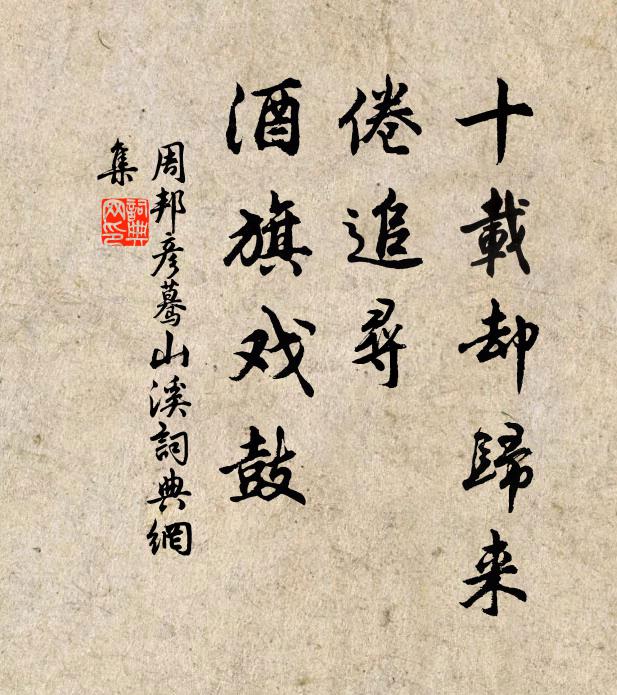 十載却歸来
倦追尋
酒旗戏鼓
周邦彦驀山溪詞典網
集
詞典
网印